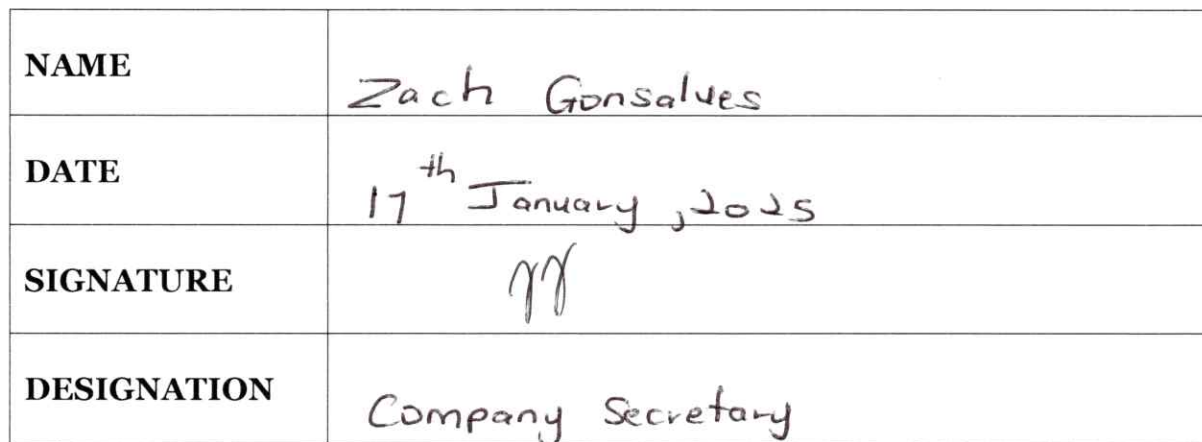 NAME Zach Gonsalves
DATE 17th January, 2025
SIGNATURE
DESIGNATION Company Secretary